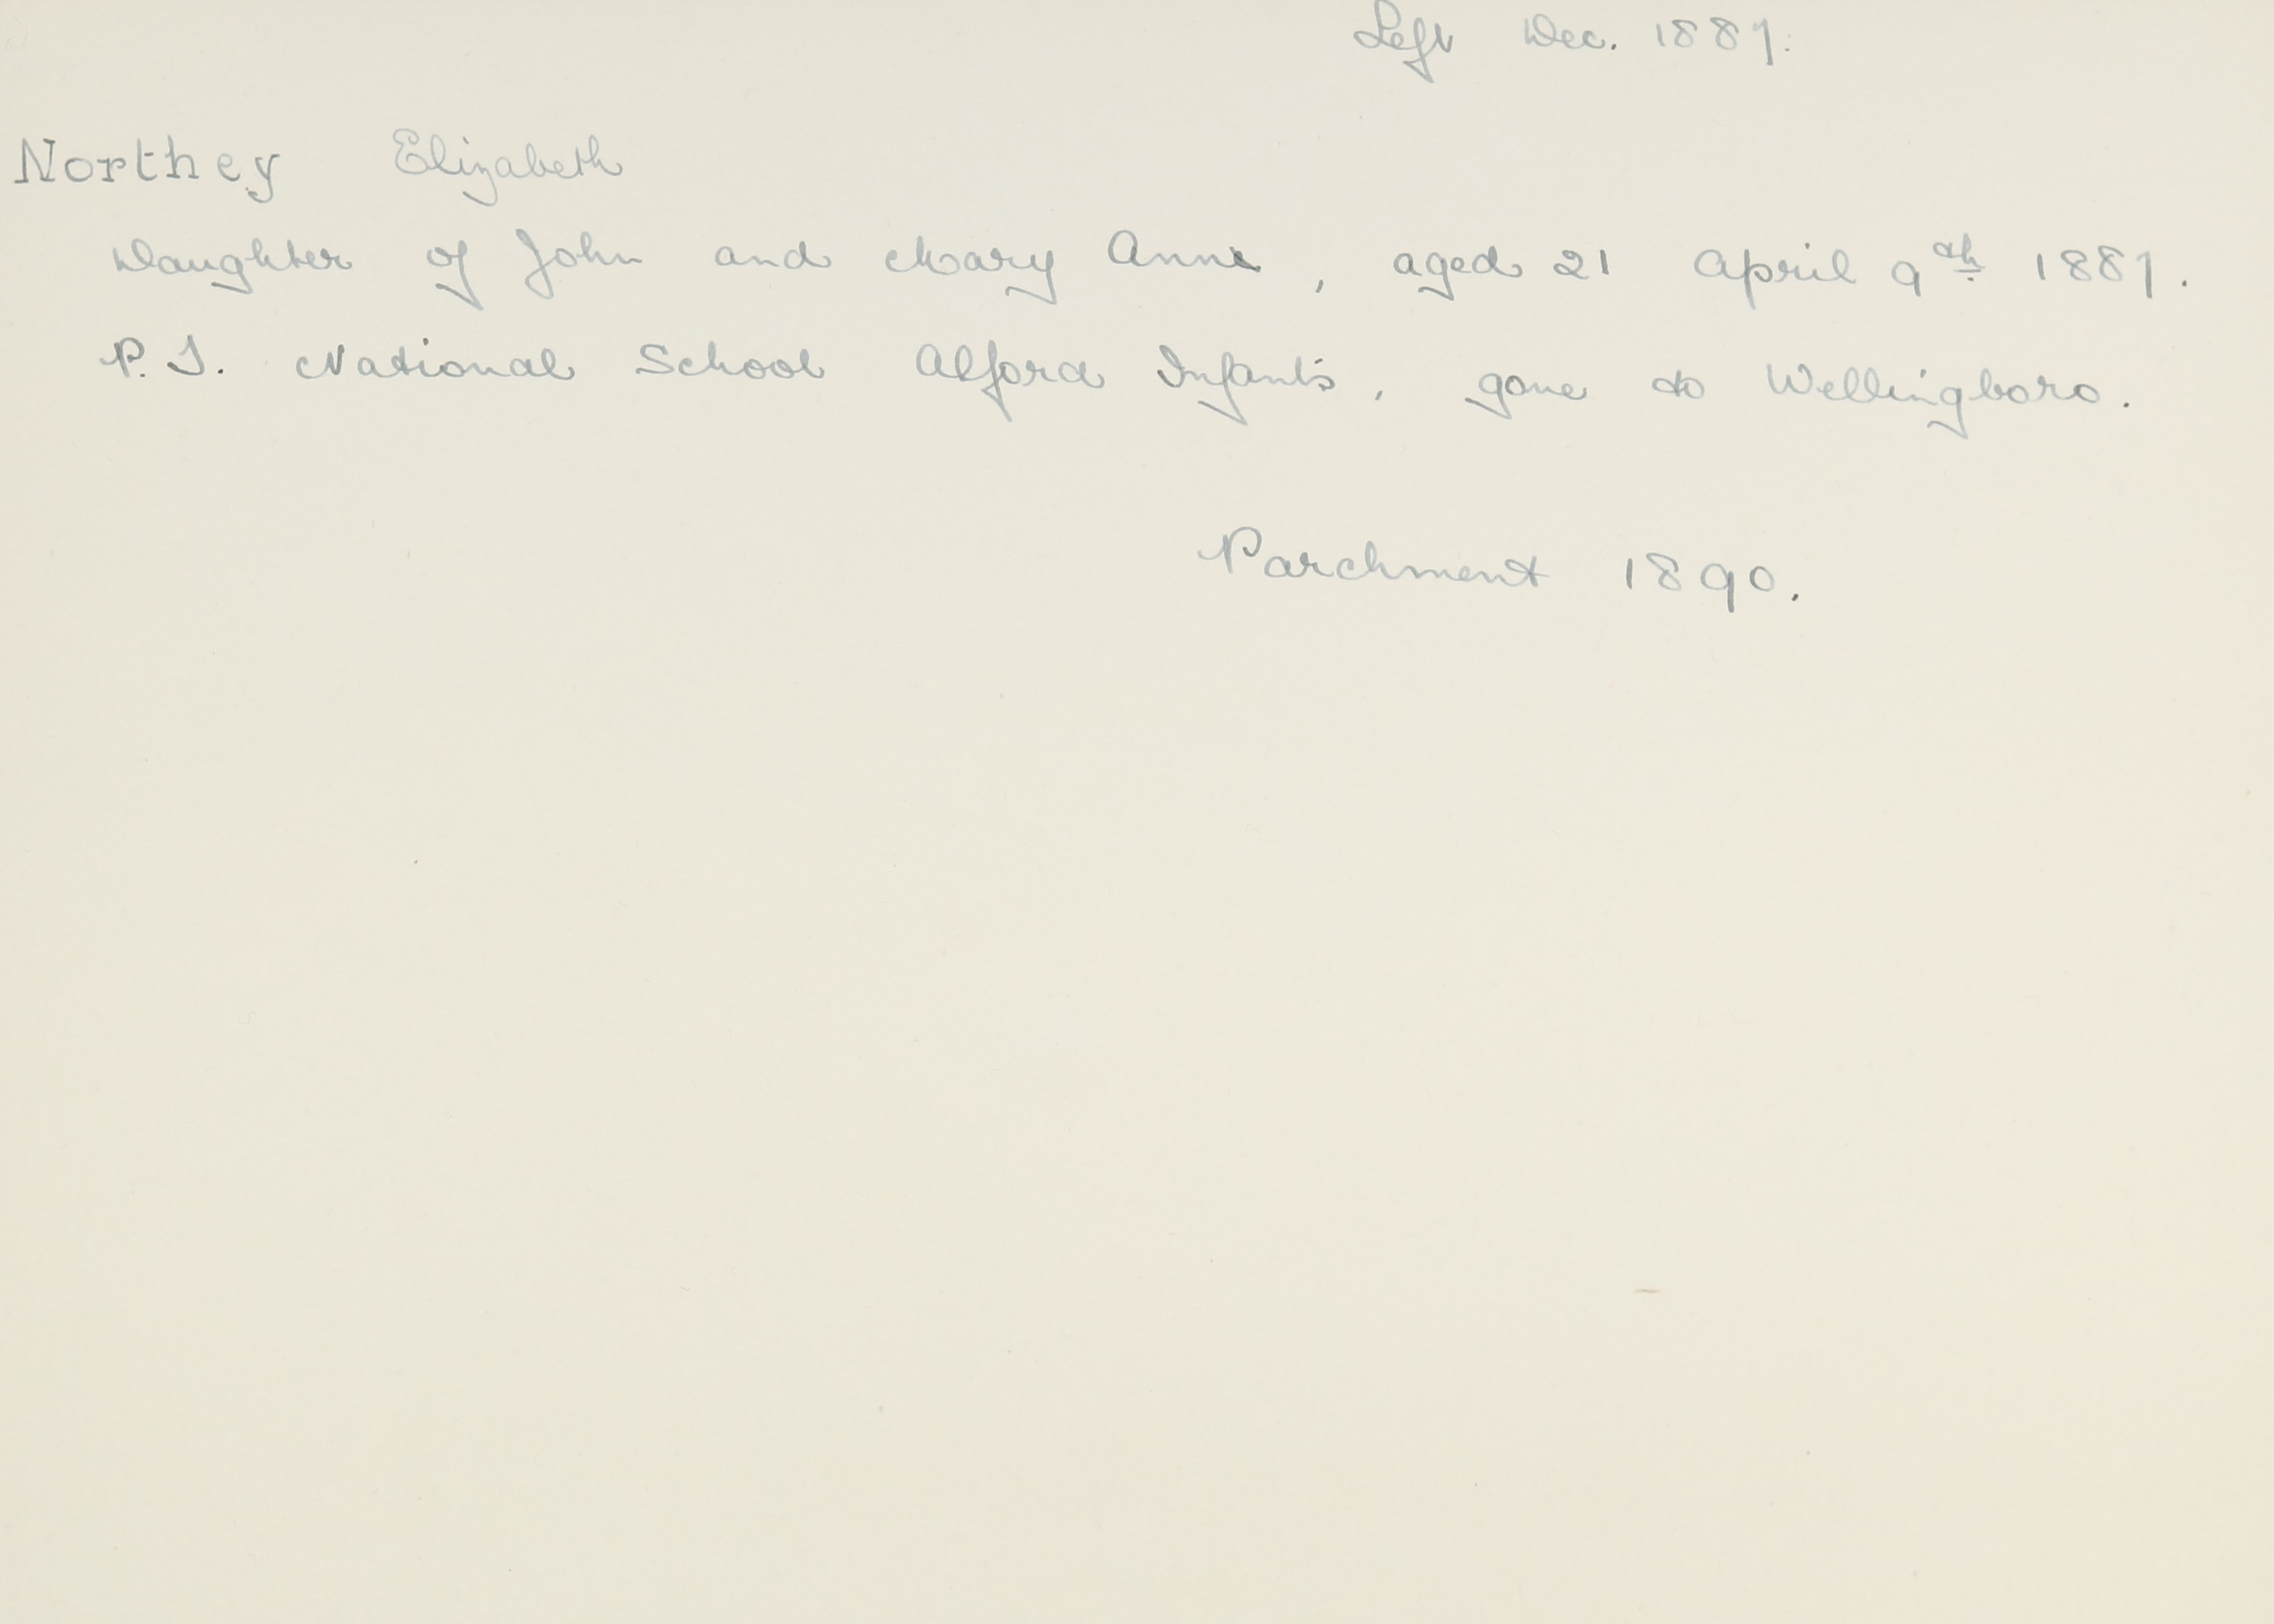 Left Dec. 1887.
Northey Elizabeth
Daughter of John and Mary Anne, aged 21 April 9th 1887.
P.T. National School Alford Infants, gone to Wellingboro.
Parchment 1890.